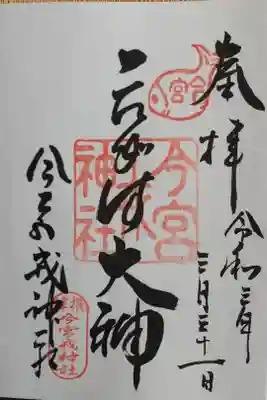 奉拝
令和三年
三月三十一日
大神
今宮戎神社
今宮戎神社
今宮戎神社